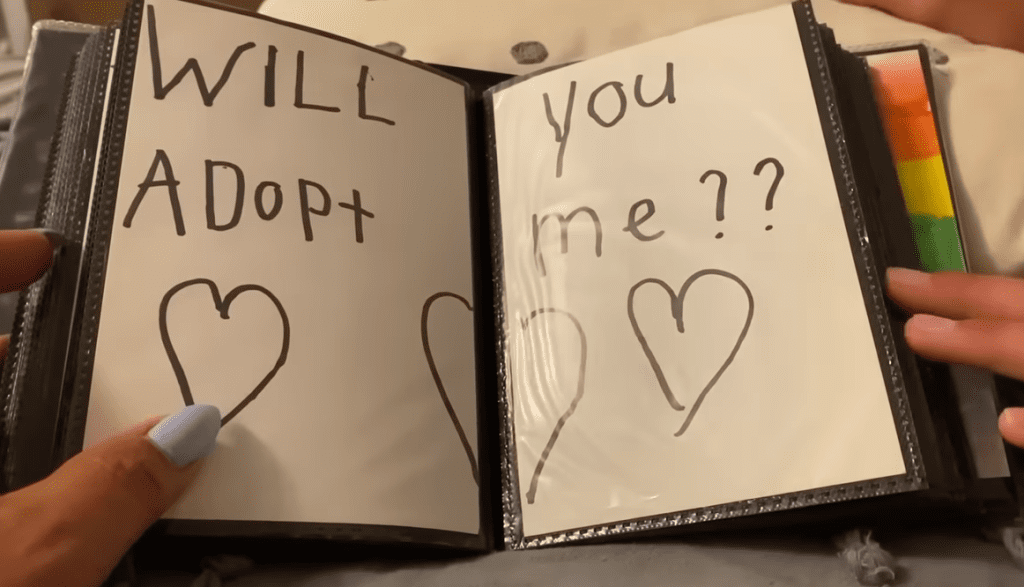 WILL
ADOPt
you
me??